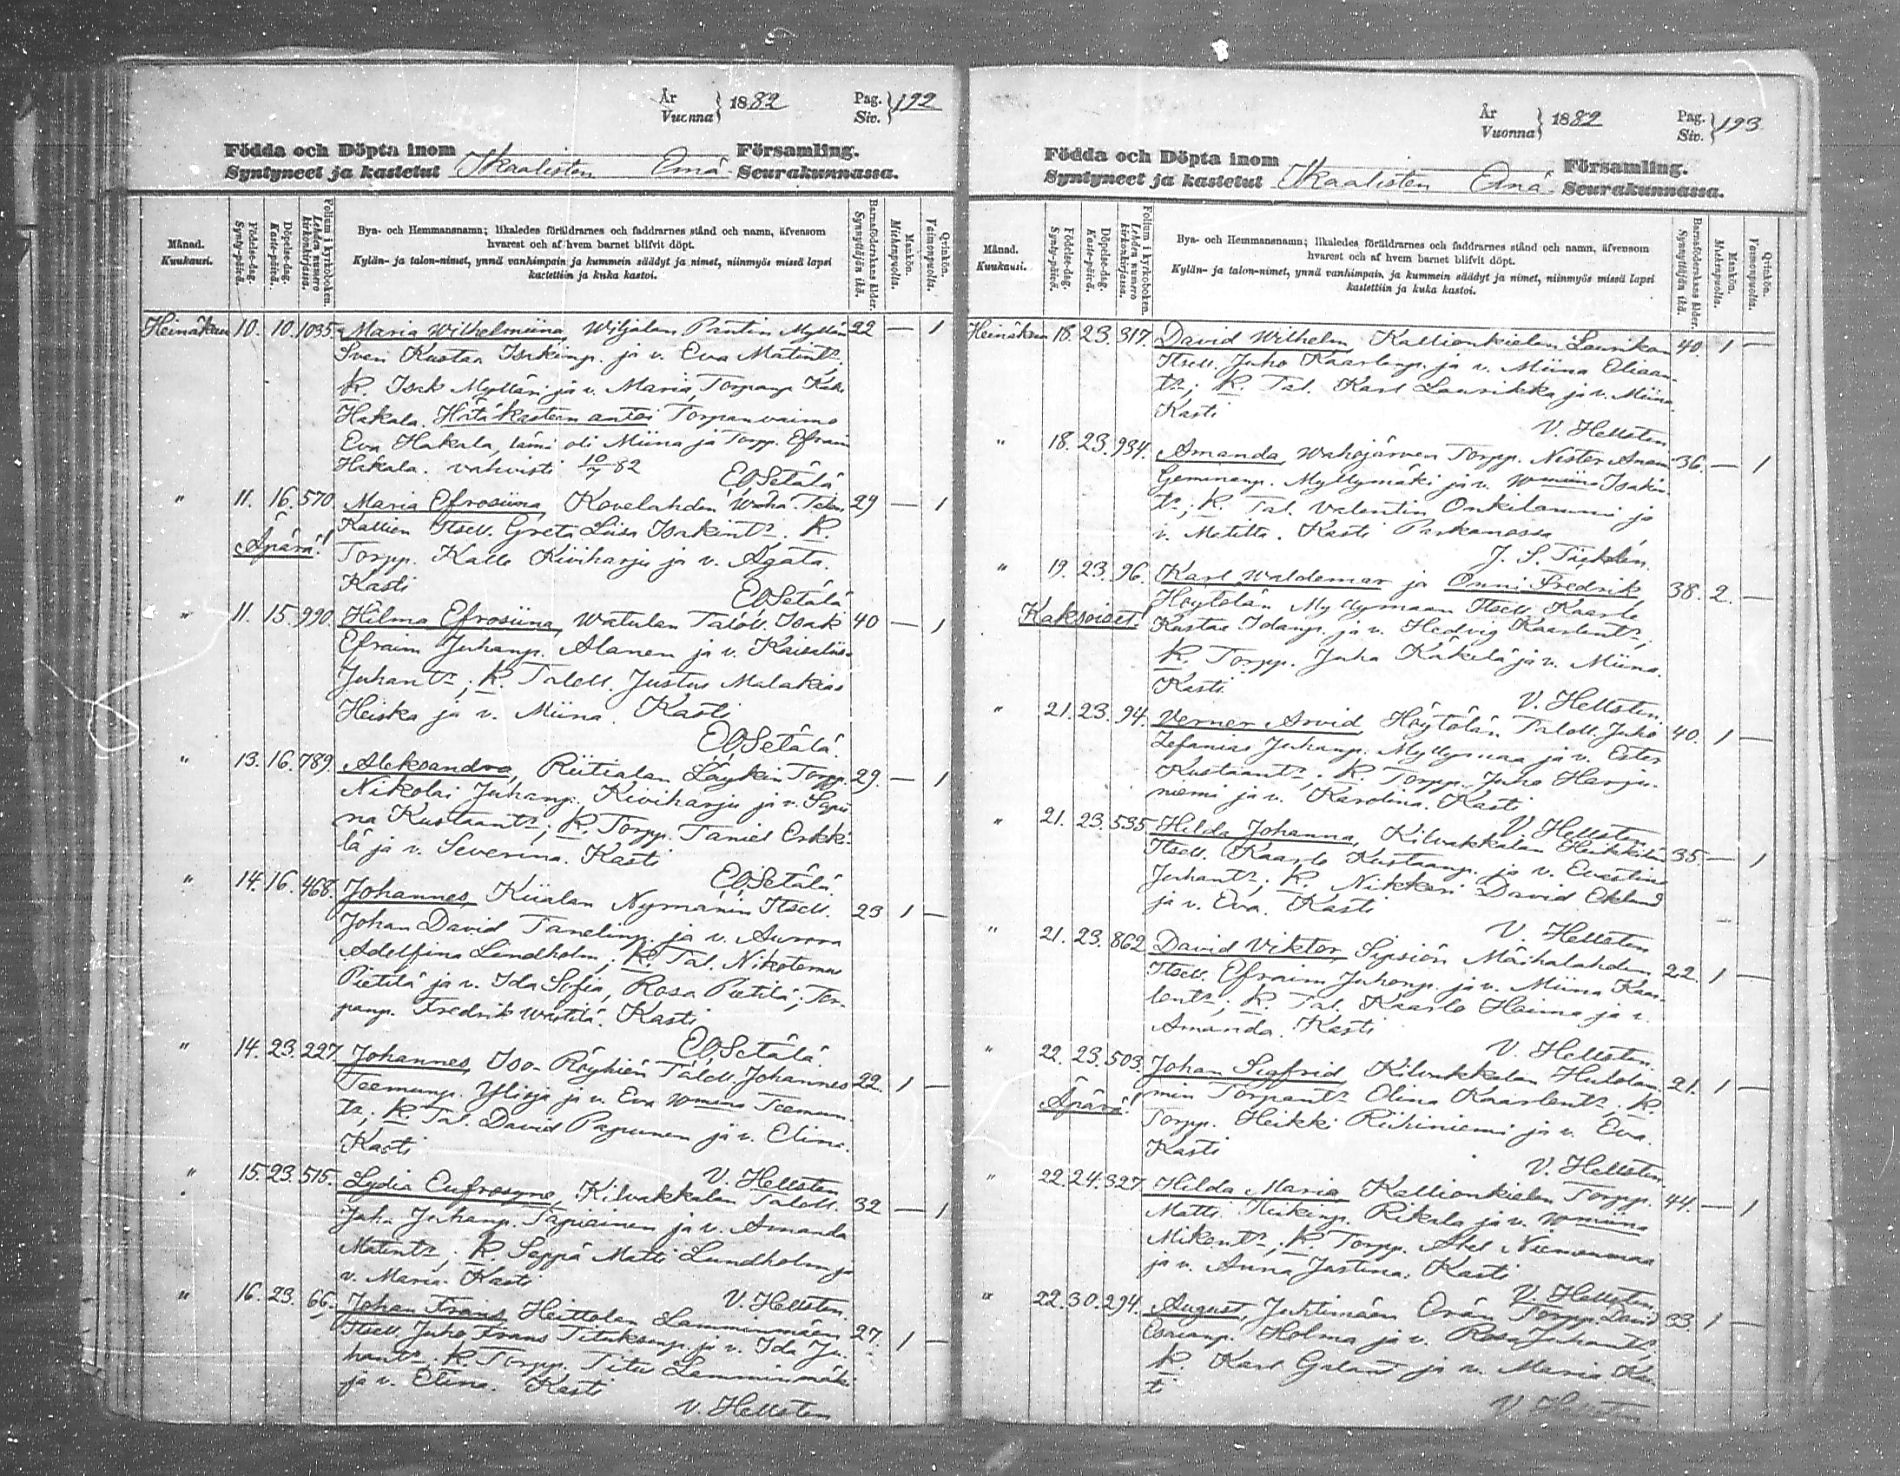 År
Vuonna } 1882 Pag.
Siv. } 192
Födda och Döpta inom
Syntyneet ja kastetut Ikaalisten Emä Församling.
Seurakunnassa.
Månad.
Kuukausi.
Födelse-dag.
Synty-päivä.
Döpelse-dag.
Kaste-päivä.
Folium i kyrkoboken.
Lehden numero kirkonkirjassa.
Bya- och Hemmansnamn; likaledes föräldrarnes och faddrarnes stånd och namn, äfvensom
hvarest och af hvem barnet blifvit döpt.
Kylän- ja talon-nimet, ynnä vanhimpain ja kummein säädyt ja nimet, niinmyös missä lapsi
kastettiin ja kuka kastoi.
Barnaföderskans ålder.
Synnyttäjän ikä.
Mankön.
Miehenpuolia.
Qvinkön.
Vaimonpuolia.
Heinäkuu 10. 10. 1035 Maria Wilhelmiina, Wiljalan Pantin Myllän 22 — 1
Sven Kustaa Isakinp. ja v. Eva Matintr.
K. Isak Mylläri ja v. Maria, Torpanp. Kalle
Hakala. Hätäkasteen antoi Torpanvaimo
Eva Hakala, läsnä oli Miina ja Torp. Efraim
Hakala. vahvisti 10/7 82
EOSetälä
" 11. 16. 570 Maria Efrosiina, Kovelahden Wähä 29 — 1
Kallien Itsell. Greta Liisa Isakintr. K.
Äpärä! Torpp. Kalle Kiviharju ja v. Agata.
Kasti
EOSetälä
" 11. 15. 990 Hilma Efrosiina, Watulan Taloll. Isak 40 — 1
Efraim Juhanp. Alanen ja v. Kaisaliisa
Juhantr.; K. Taloll. Justus Malakias
Heiska ja v. Miina. Kasti
EOSetälä
" 13. 16. 789 Aleksandra, Riitialan Läykin Torpp. 29. — 1
Nikolai Juhanp. Kiviharju ja v. Sapii
na Kustaantr.; K. Torpp. Taniel Erkki-
lä ja v. Severina. Kasti
EOSetälä
" 14. 16. 468. Johannes, Kiialan Nymanin Itsell. 23 1 —
Johan David Tanelinp. ja v. Aurora
Adolfina Lindholm; K. Tal. Nikotemus
Pietilä ja v. Ida Sofia, Rosa Pietilä; Tor-
panp. Fredrik Westilä. Kasti
EOSetälä
" 14. 23. 227. Johannes, Iso-Röyhiön Taloll. Johannes 22. 1 —
Teemunp. Ylioja ja v. Eva Wmiina Teemun-
tr; K. Tal. David Papunen ja v. Elina.
Kasti
V. Hellsten
" 15. 23. 515. Lydia Eufrosyne, Kilvakkalan Taloll. 32 — 1
Juha Juhanp. Tapiainen ja v. Amanda
Matintr.; K. Seppä Matti Lundholm ja
v. Maria. Kasti
V. Hellsten.
" 16. 23. 66. Johan Frans, Heittolan Lamminmäen 27. 1 —
Itsell. Juho Frans Tituksenp. ja v. Ida Ju-
hantr. K. Torpp. Titus Lamminmäki
ja v. Elina. Kasti
V. Hellsten
År
Vuonna } 1882 Pag.
Siv. } 193
Födda och Döpta inom
Syntyneet ja kastetut Ikaalisten Emä Församling.
Seurakunnassa.
Månad.
Kuukausi.
Födelse-dag.
Synty-päivä.
Döpelse-dag.
Kaste-päivä.
Folium i kyrkoboken.
Lehden numero kirkonkirjassa.
Bya- och Hemmansnamn; likaledes föräldrarnes och faddrarnes stånd och namn, äfvensom
hvarest och af hvem barnet blifvit döpt.
Kylän- ja talon-nimet, ynnä vanhimpain ja kummein säädyt ja nimet, niinmyös missä lapsi
kastettiin ja kuka kastoi.
Barnaföderskans ålder.
Synnyttäjän ikä.
Mankön.
Miehenpuolia.
Qvinkön.
Vaimonpuolia.
Heinäkuu 18. 23. 317. David Wilhelm, Kallionkielen Laurikan 40. 1 —
Itsell. Juho Kaarlenp. ja v. Miina Eliaan-
tr; K. Tal. Karl Laurikka ja v. Miina.
Kasti
V. Hellsten
" 18. 23. 934. Amanda, Wahojärven Torpp. Nestor Anian 36. — 1
Myllymäki ja v. Wmiina Isakin-
tr.; K. Tal. Valentin Onkilammi ja
v. Matilta. Kasti Parkanossa
J. S.
" 19. 23. 96. Karl Waldemar ja Onni Fredrik 38. 2. —
Höytölän Myllymaan Itsell. Kaarle
Kaksoiset! Kustaa Idanp. ja v. Hedvig Kaarlentr;
K. Torpp. Juha Käkelä ja v. Miina.
Kasti
V. Hellsten.
" 21. 23. 94. Verner Arvid, Höytölän Taloll. Juho 40. 1 —
Zefanias Juhanp. Myllymaa ja v. Ester
Kustaantr.; K. Torpp. Juho Harju-
niemi ja v. Karolina. Kasti
V. Hellsten.
" 21. 23. 535 Hilda Johanna, Kilvakkalan Heikkilän 35. — 1
Itsell. Kaarlo Kustaanp. ja v. Evastina
Juhantr; K. Nikkari David Eklund
ja v. Eva. Kasti
V. Hellsten
" 21. 23. 862 David Viktor, Sipsiön Mäihälahden 22. 1 —
Itsell. Efraim Juhanp. ja v. Miina Kaar-
lentr.; K. Tal. Kaarlo Haima ja v.
Amanda. Kasti
V. Hellsten.
" 22. 23. 503. Johan Sigfrid, Kilvakkalan 21. 1 —
min Torpantr. Olina Kaarlentr. K.
Äpärä! Torpp. Heikki Riihiniemi ja v. Eva.
Kasti
V. Hellsten
" 22. 24. 327. Hilda Maria, Kallionkielen Torpp. 44. — 1
Matti Heikinp. Rikala ja v. Wmiina
Mikontr.; K. Torpp. Akel Niemenmaa
ja v. Anna Justina. Kasti
V. Hellsten.
" 22. 30. 294. August, Juhtimäen Torpp. David 33. 1 —
Esaianp. Holma ja v. Rosa Juhantr.
K. Karl Galant ja v. Maria Kas-
ti
V. Hellsten